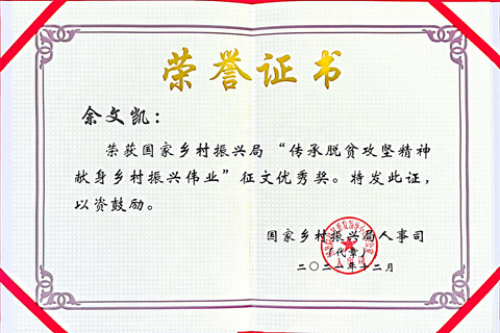 荣誉证书
余文凯：
荣获国家乡村振兴局“传承脱贫攻坚精神
献身乡村振兴伟业”征文优秀奖。特发此证，
以资鼓励。
国家乡村振兴局人事司
（代章）
二〇二一年十二月